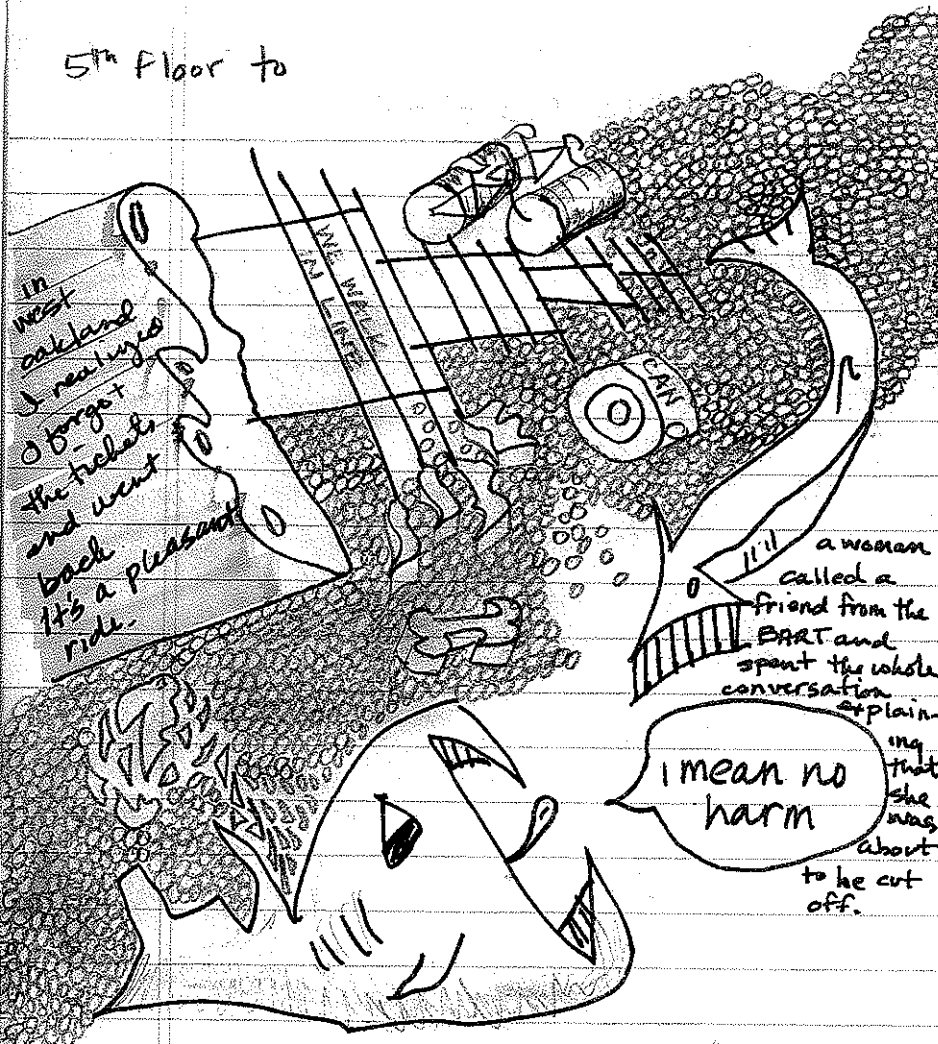 5th floor to
WE WALK
IN LINE
CAN
in
west
oakland
I realized
I forgot
the tickets
and went
back
It's a pleasant
ride.
a woman
called a
friend from the
BART and
spent the whole
conversation
explain-
ing
that
she
was
about
to be cut
off.
i mean no
harm